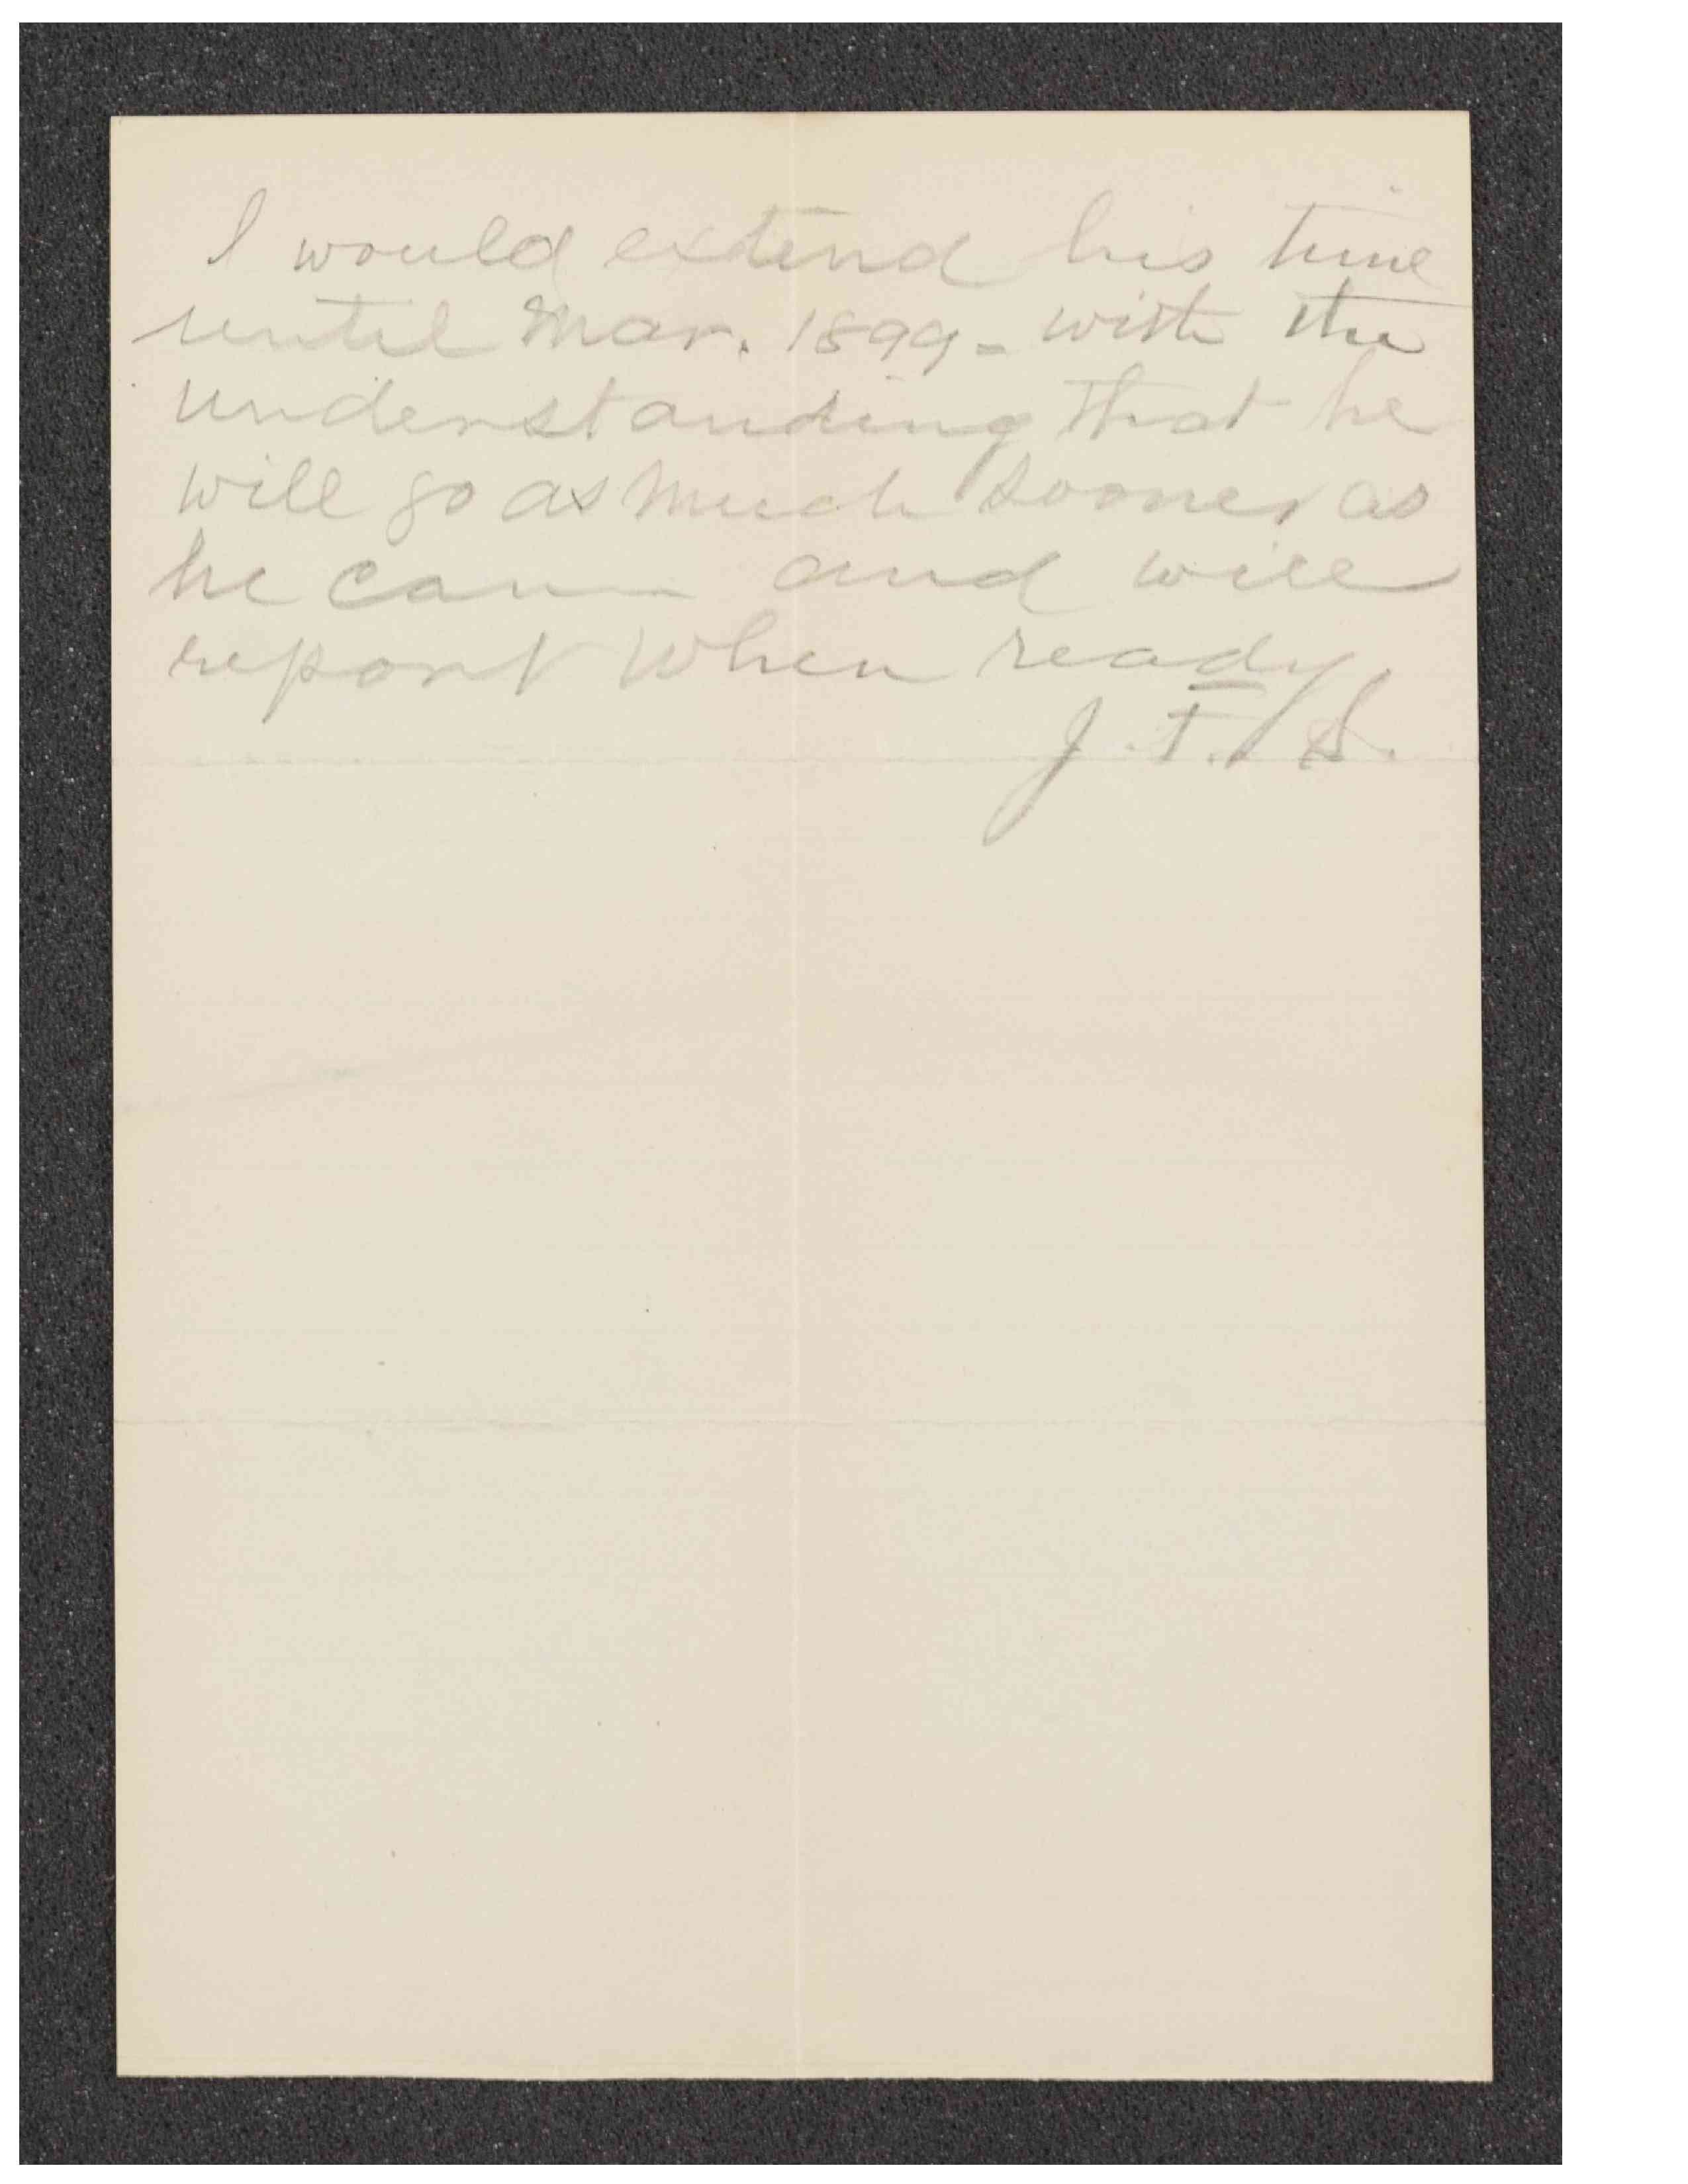 I would extend his time
until Mar. 1899 - with the
understanding that he
will go as much sooner as
he can and will
report when ready.
J. F. S.